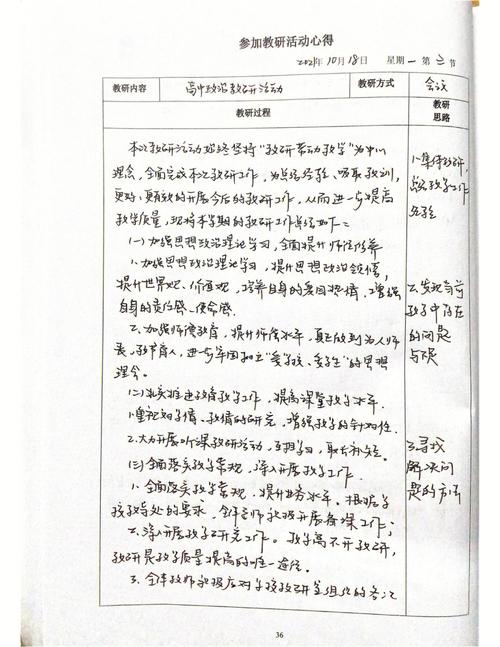 参加教研活动心得
2021年10月18日 星期一 第三节
教研内容 高中政治教研活动 教研方式 会议
教研过程 教研思路
本次教研活动始终坚持"教研带动教学"为中心
理念,全面完成本次教研工作,为总结经验、吸取教训,
更好、更有效的开展今后的教研工作,从而进一步提高
教学质量,现将本学期的教研工作总结如下:
(一)加强思想政治理论学习,全面提升师德修养
1.加强思想政治理论学习,提升思想政治领悟,
提升世界观、价值观,培养自身的爱国热情,增强
自身的责任感、使命感。
二、加强师德教育,提升师德水平,真正做到为人师
表、教书育人,进一步牢固树立"爱学校、爱学生"的思想
理念。
(二)扎实推进教育教学工作,提高课堂教学水平.
1.重视对学情、教情的研究,增强教学的针对性.
2.大力开展听课教研活动,互相学习,取长补短.
(三)全面落实教学常规,深入开展教学工作.
1.全面落实教学常规,提升业务水平。根据学
校教导处的要求,全体老师积极开展备课工作;
二、深入开展教学研究工作。教学离不开教研,
教研是教学质量提高的唯一途径。
3.全体教师积极应对学校教研室组织的各
1.集体教研,
总结教学工作
经验
2.发现当前
教学中存在
的问题
与不足
3.寻找
解决问
题的方法
36